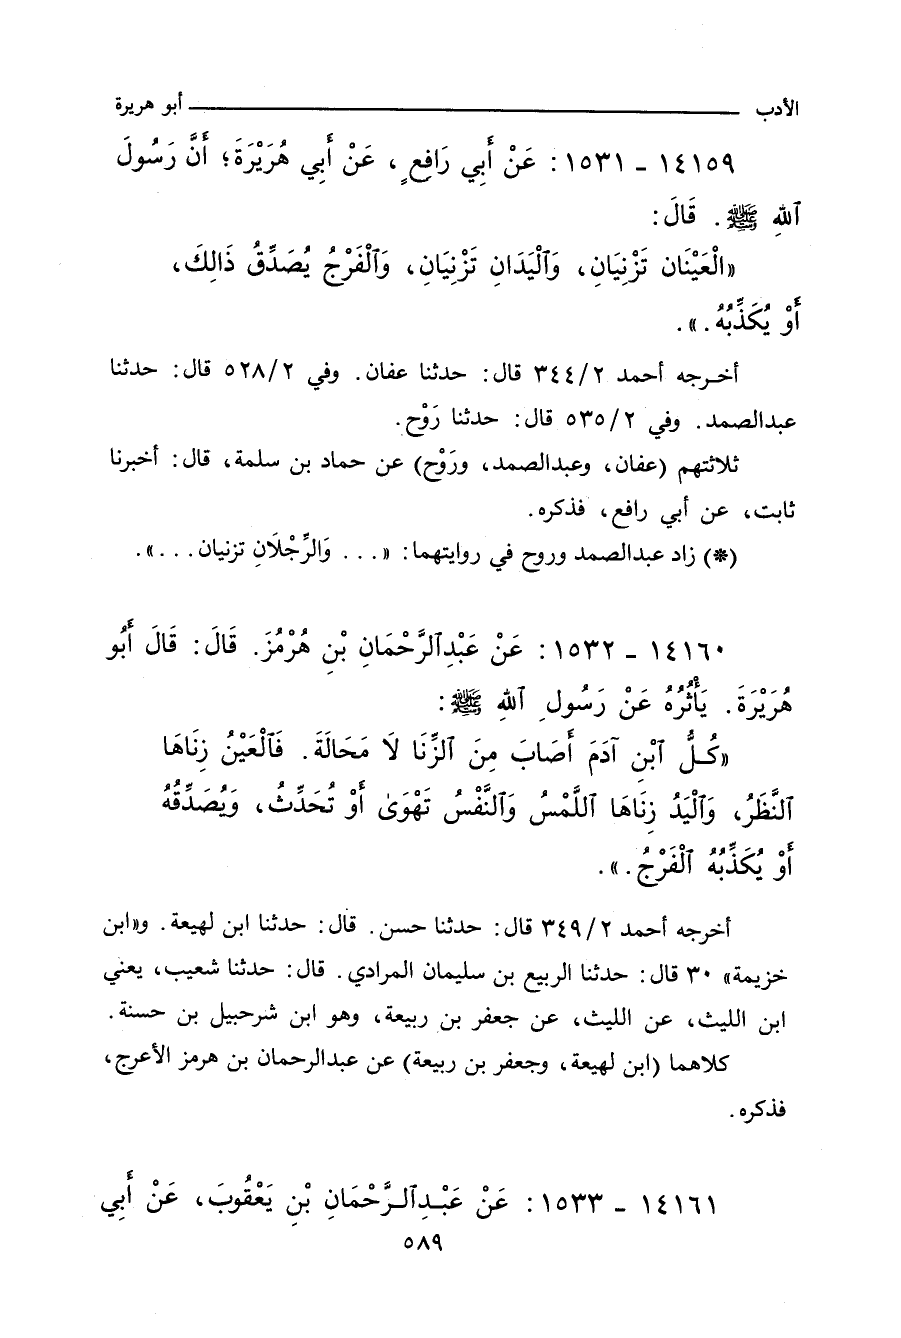 الأدب ــــــــــــــــــــ أبو هريرة
١٤١٥٩ ـ ١٥٣١ : عَنْ أَبِي رَافِعٍ ، عَنْ أَبِي هُرَيْرَةَ؛ أَنَّ رَسُولَ
ٱللهِ ﷺ . قَالَ :
«الْعَيْنَانِ تَزْنِيَانِ، وَٱلْيَدَانِ تَزْنِيَانِ، وَٱلْفَرْجُ يُصَدِّقُ ذَالِكَ،
أَوْ يُكَذِّبُهُ .» .
أخـرجه أحمد ٣٤٤/٢ قال: حدثنا عفان. وفي ٥٢٨/٢ قال: حدثنا
عبدالصمد. وفي ٥٣٥/٢ قال: حدثنا رَوْح.
ثلاثتهم (عفان، وعبدالصمد، ورَوْح) عن حماد بن سلمة، قال: أخبرنا
ثابت، عن أبي رافع، فذكره.
(*) زاد عبدالصمد وروح في روايتهما: «... وَالرِّجْلَانِ تزنيان ...».
١٤١٦٠ ـ ١٥٣٢ : عَنْ عَبْدِٱلرَّحْمَانِ بْنِ هُرْمُزَ. قَالَ: قَالَ أَبُو
هُرَيْرَةَ. يَأْثُرُهُ عَنْ رَسُولِ ٱللهِ ﷺ :
«كُـلُّ ٱبْنِ آدَمَ أَصَابَ مِنَ ٱلزِّنَا لَا مَحَالَةَ. فَٱلْعَيْنُ زِنَاهَا
ٱلنَّظَرُ، وَٱلْيَدُ زِنَاهَا ٱللَّمْسُ وَٱلنَّفْسُ تَهْوَىٰ أَوْ تُحَدِّثُ، وَيُصَدِّقُهُ
أَوْ يُكَذِّبُهُ ٱلْفَرْجُ .» .
أخرجه أحمد ٣٤٩/٢ قال: حدثنا حسن. قال: حدثنا ابن لهيعة. و«ابن
خزيمة» ٣٠ قال: حدثنا الربيع بن سليمان المرادي. قال: حدثنا شعيب، يعني
ابن الليث، عن الليث، عن جعفر بن ربيعة، وهو ابن شرحبيل بن حسنة.
كلاهما (ابن لهيعة، وجعفر بن ربيعة) عن عبدالرحمان بن هرمز الأعرج،
فذكره.
١٤١٦١ ـ ١٥٣٣ : عَنْ عَبْـدِٱلـرَّحْمَانِ بْنِ يَعْقُوبَ، عَنْ أَبِي
٥٨٩